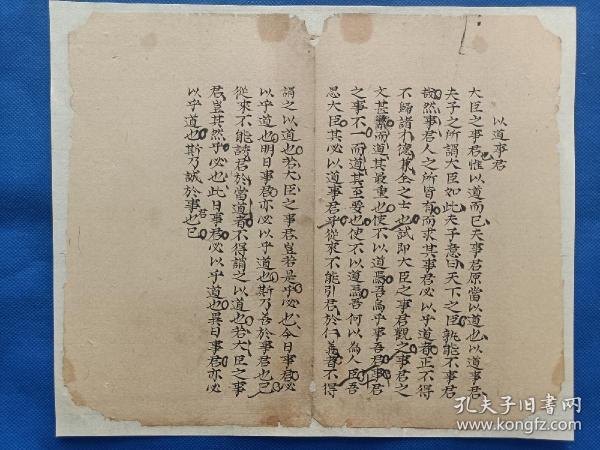 以道事君
大臣之事君惟以道而已夫事君原當以道也以道事君
夫子之所謂大臣如此夫子意曰天下之臣孰能不事君
哉然事君人之所皆有而求其事君必以乎道者正不得
不歸諸才德兼全之士也試即大臣之事君觀之事君之
文甚繁而道其最重也使不以道焉吾為乎事吾君事君
之事不一而道其至要也使不以道焉吾何以為人臣吾
思大臣其必以道事君乎從來不能引君於仁義者不得
謂之以道也若大臣之事君豈若是乎必也今日事君必
以乎道也明日事君亦必以乎道也斯乃善於事君也已
從來不能誘君於當道者不得謂之以道也若大臣之事
君豈其然乎必也此日事君必以乎道也異日事君亦必
以乎道也斯乃誠於事君也已
孔夫子旧书网
www.kongfz.com